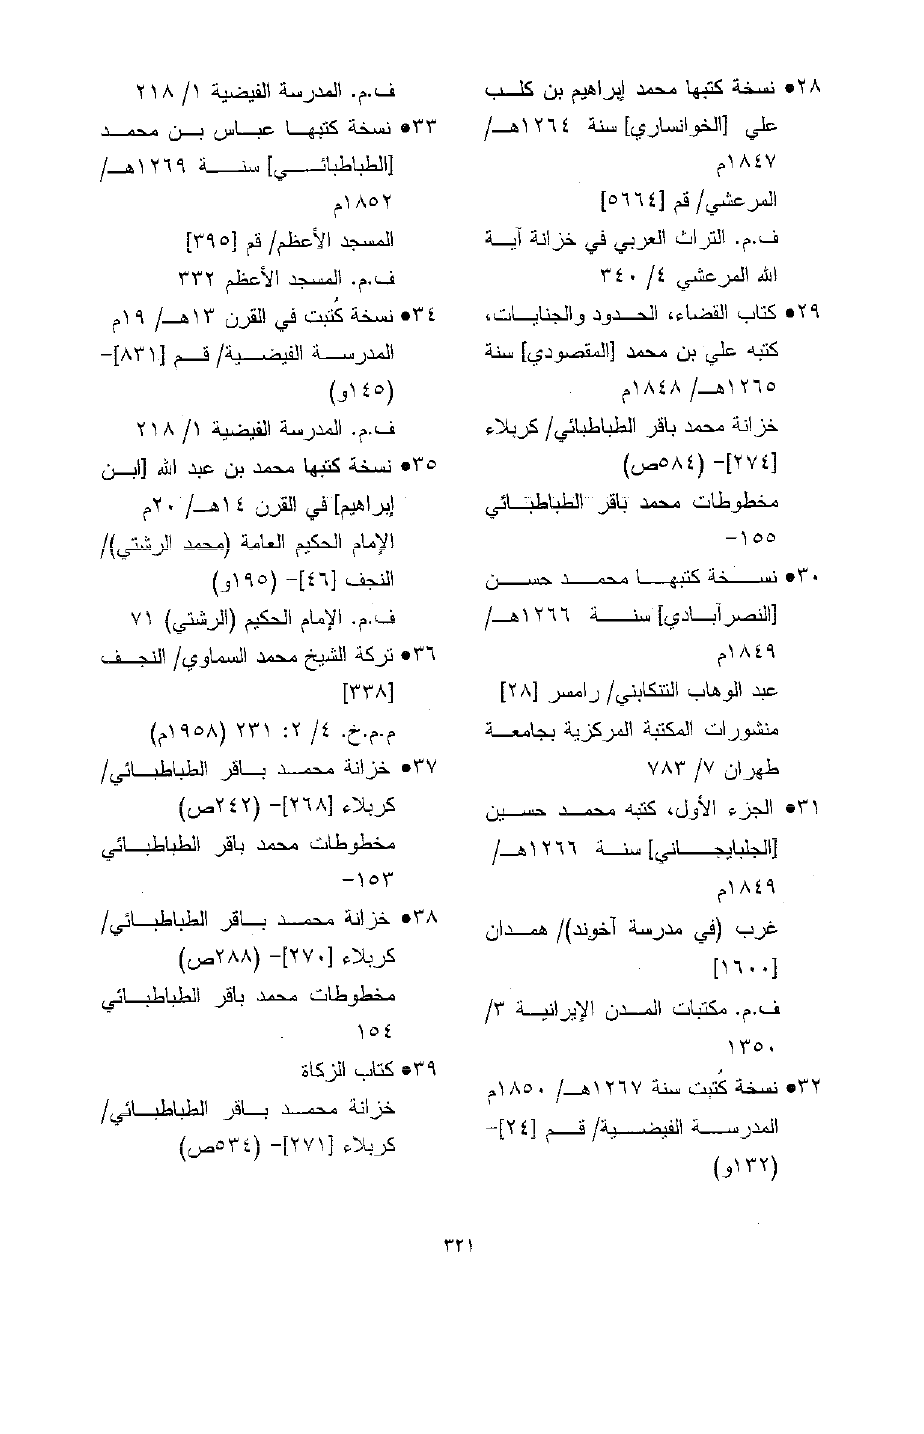 ٢٨• نسخة كتبها محمد إبراهيم بن كلب
علي [الخوانساري] سنة ١٢٦٤هـ/
١٨٤٧م
المرعشي/ قم [٥٦٦٤]
ف.م. التراث العربي في خزانة آية
الله المرعشي ٤/ ٣٤٠
٢٩• كتاب القضاء، الحدود والجنايات،
كتبه علي بن محمد [المقصودي] سنة
١٢٦٥هـ/ ١٨٤٨م
خزانة محمد باقر الطباطبائي/ كربلاء
[٢٧٤]- (٥٨٤ص)
مخطوطات محمد باقر الطباطبائي
١٥٥-
٣٠• نسخة كتبها محمد حسن
[النصرآبادي] سنة ١٢٦٦هـ/
١٨٤٩م
عبد الوهاب التنكابني/ رامسر [٢٨]
منشورات المكتبة المركزية بجامعة
طهران ٧/ ٧٨٣
٣١• الجزء الأول، كتبه محمد حسين
[الجلبايجاني] سنة ١٢٦٦هـ/
١٨٤٩م
غرب (في مدرسة آخوند)/ همدان
[١٦٠٠]
ف.م. مكتبات المدن الإيرانية ٣/
١٣٥٠
٣٢• نسخة كُتبت سنة ١٢٦٧هـ/ ١٨٥٠م
المدرسة الفيضية/ قم [٢٤]-
(١٣٢و)
ف.م. المدرسة الفيضية ١/ ٢١٨
٣٣• نسخة كتبها عباس بن محمد
[الطباطبائي] سنة ١٢٦٩هـ/
١٨٥٢م
المسجد الأعظم/ قم [٣٩٥]
ف.م. المسجد الأعظم ٣٣٢
٣٤• نسخة كُتبت في القرن ١٣هـ/ ١٩م
المدرسة الفيضية/ قم [٨٣١]-
(١٤٥و)
ف.م. المدرسة الفيضية ١/ ٢١٨
٣٥• نسخة كتبها محمد بن عبد الله [ابن
إبراهيم] في القرن ١٤هـ/ ٢٠م
الإمام الحكيم العامة (محمد الرشتي)/
النجف [٤٦]- (١٩٥و)
ف.م. الإمام الحكيم (الرشتي) ٧١
٣٦• تركة الشيخ محمد السماوي/ النجف
[٣٣٨]
م.م.خ. ٤/ ٢: ٢٣١ (١٩٥٨م)
٣٧• خزانة محمد باقر الطباطبائي/
كربلاء [٢٦٨]- (٢٤٢ص)
مخطوطات محمد باقر الطباطبائي
١٥٣-
٣٨• خزانة محمد باقر الطباطبائي/
كربلاء [٢٧٠]- (٢٨٨ص)
مخطوطات محمد باقر الطباطبائي
١٥٤
٣٩• كتاب الزكاة
خزانة محمد باقر الطباطبائي/
كربلاء [٢٧١]- (٥٣٤ص)
٣٢١